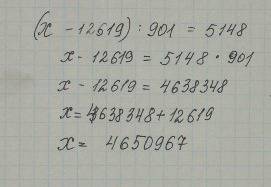 (x - 12619) : 901 = 5148
x - 12619 = 5148 · 901
x - 12619 = 4638348
x = 4638348 + 12619
x = 4650967